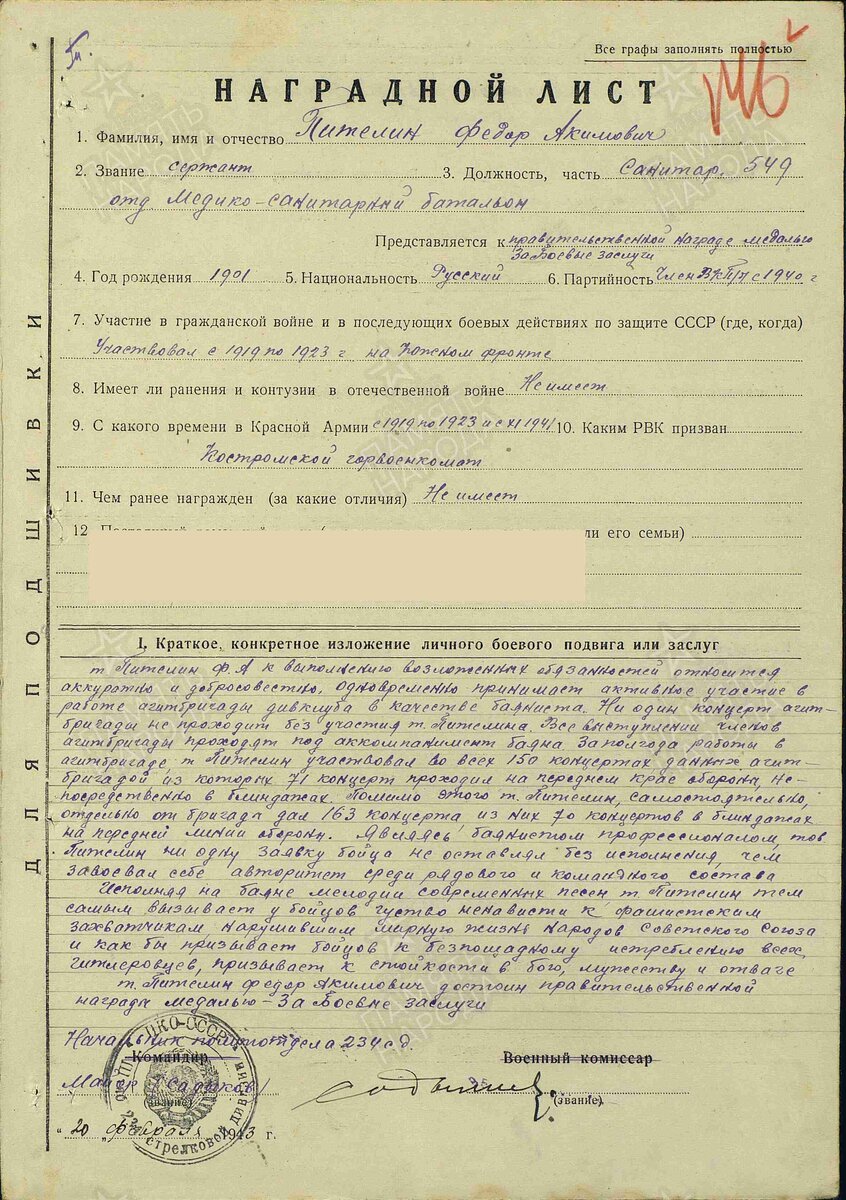 Все графы заполнять полностью
НАГРАДНОЙ ЛИСТ
1. Фамилия, имя и отчество Пителин Федор Акимович
2. Звание сержант 3. Должность, часть Санитар. 549
отд Медико-санитарный батальон
Представляется к правительственной награде медалью
За Боевые заслуги
4. Год рождения 1901 5. Национальность Русский 6. Партийность Член ВКП/б с 1940 г
7. Участие в гражданской войне и в последующих боевых действиях по защите СССР (где, когда)
Участвовал с 1919 по 1923 г на Южном фронте
8. Имеет ли ранения и контузии в отечественной войне Не имеет
9. С какого времени в Красной Армии с 1919 по 1923 и с XI 1941 10. Каким РВК призван
Костромской горвоенкомат
11. Чем ранее награжден (за какие отличия) Не имеет
12
ли его семьи)
ДЛЯ ПОДШИВКИ
I. Краткое, конкретное изложение личного боевого подвига или заслуг
т Пителин Ф.А к выполнению возложенных обязанностей относится
аккуратно и добросовестно. Одновременно принимает активное участие в
работе агитбригады дивклуба в качестве баяниста. Ни один концерт агит-
бригады не проходит без участия т. Пителина. Все выступлении членов
агитбригады проходят под аккомпанимент баяна. За полгода работы в
агитбригаде т Пителин участвовал во всех 150 концертах данных агит-
бригадой из которых 71 концерт проходил на переднем крае обороны, не-
посредственно в блиндажах. Помимо этого т. Пителин, самостоятельно,
отдельно от бригада дал 163 концерта из них 70 концертов в блиндажах
на передней линии обороны. Являясь баянистом профессионалом, тов
Пителин ни одну заявку бойца не оставлял без исполнения, чем
завоевал себе авторитет среди рядового и командного состава
Исполняя на баяне мелодии современных песен, т. Пителин тем
самым вызывает у бойцов густво ненависти к фашистским
захватчикам, нарушившим мирную жизнь народов Советского Союза
и как бы призывает бойцов к безпощадному истреблению всех
гитлеровцев, призывает к стойкости в бою, мужеству и отваге
т. Пителин Федор Якимович достоин правительственной
награда медалью – За Боевые заслуги
Начальник политотдела 234 сд
Командир Военный комиссар
Майор /Садыков/
(звание) (звание)
"20 " февраля 1943 г.
НКО-СССР
стрелковой дивизии
ПАМЯТЬ НАРОДА